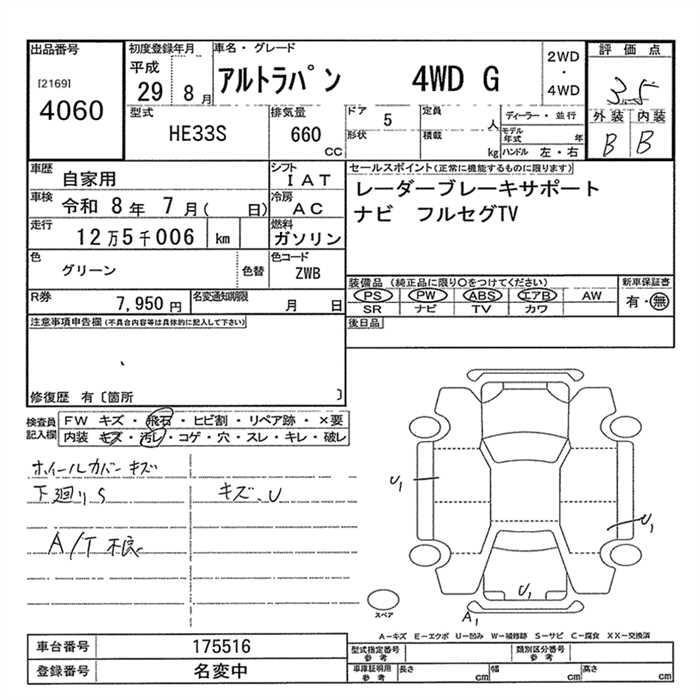 出品番号
[2169]
4060
初度登録年月
平成
29 8 月
車名・グレード
アルトラパン 4WD G
2WD
・
4WD
評価点
3.5
外装 内装
B B
型式
HE33S
排気量
660
CC
ドア 5
形状
定員 人
積載 kg
ディーラー・並行
モデル年式 年
ハンドル 左・右
車歴 自家用
シフト IAT
車検 令和 8 年 7 月( 日)
冷房 AC
走行 12万5千006 km
燃料 ガソリン
色 グリーン 色替
色コード ZWB
R券 7,950 円
名変通知期限 月 日
セールスポイント(正常に機能するものに限ります)
レーダーブレーキサポート
ナビ フルセグTV
装備品 (純正品に限り○をつけてください)
PS PW ABS エアB AW
SR ナビ TV カワ
新車保証書
有・無
後日品
注意事項申告欄(不具合内容等は具体的に記入して下さい)
修復歴 有〔箇所 〕
検査員記入欄
FW キズ・飛石・ヒビ割・リペア跡・×要
内装 キズ・汚レ・コゲ・穴・スレ・キレ・破レ
ホイールカバーキズ
下廻りS キズ、U
A/T不良
U1
U1
U1
A1
スペア
A-キズ E-エクボ U-凹み W-補修跡 S-サビ C-腐食 XX-交換済
車台番号 175516
登録番号 名変中
型式指定番号 参考
類別区分番号 参考
車庫証明用 参考
長さ cm 幅 cm 高さ cm